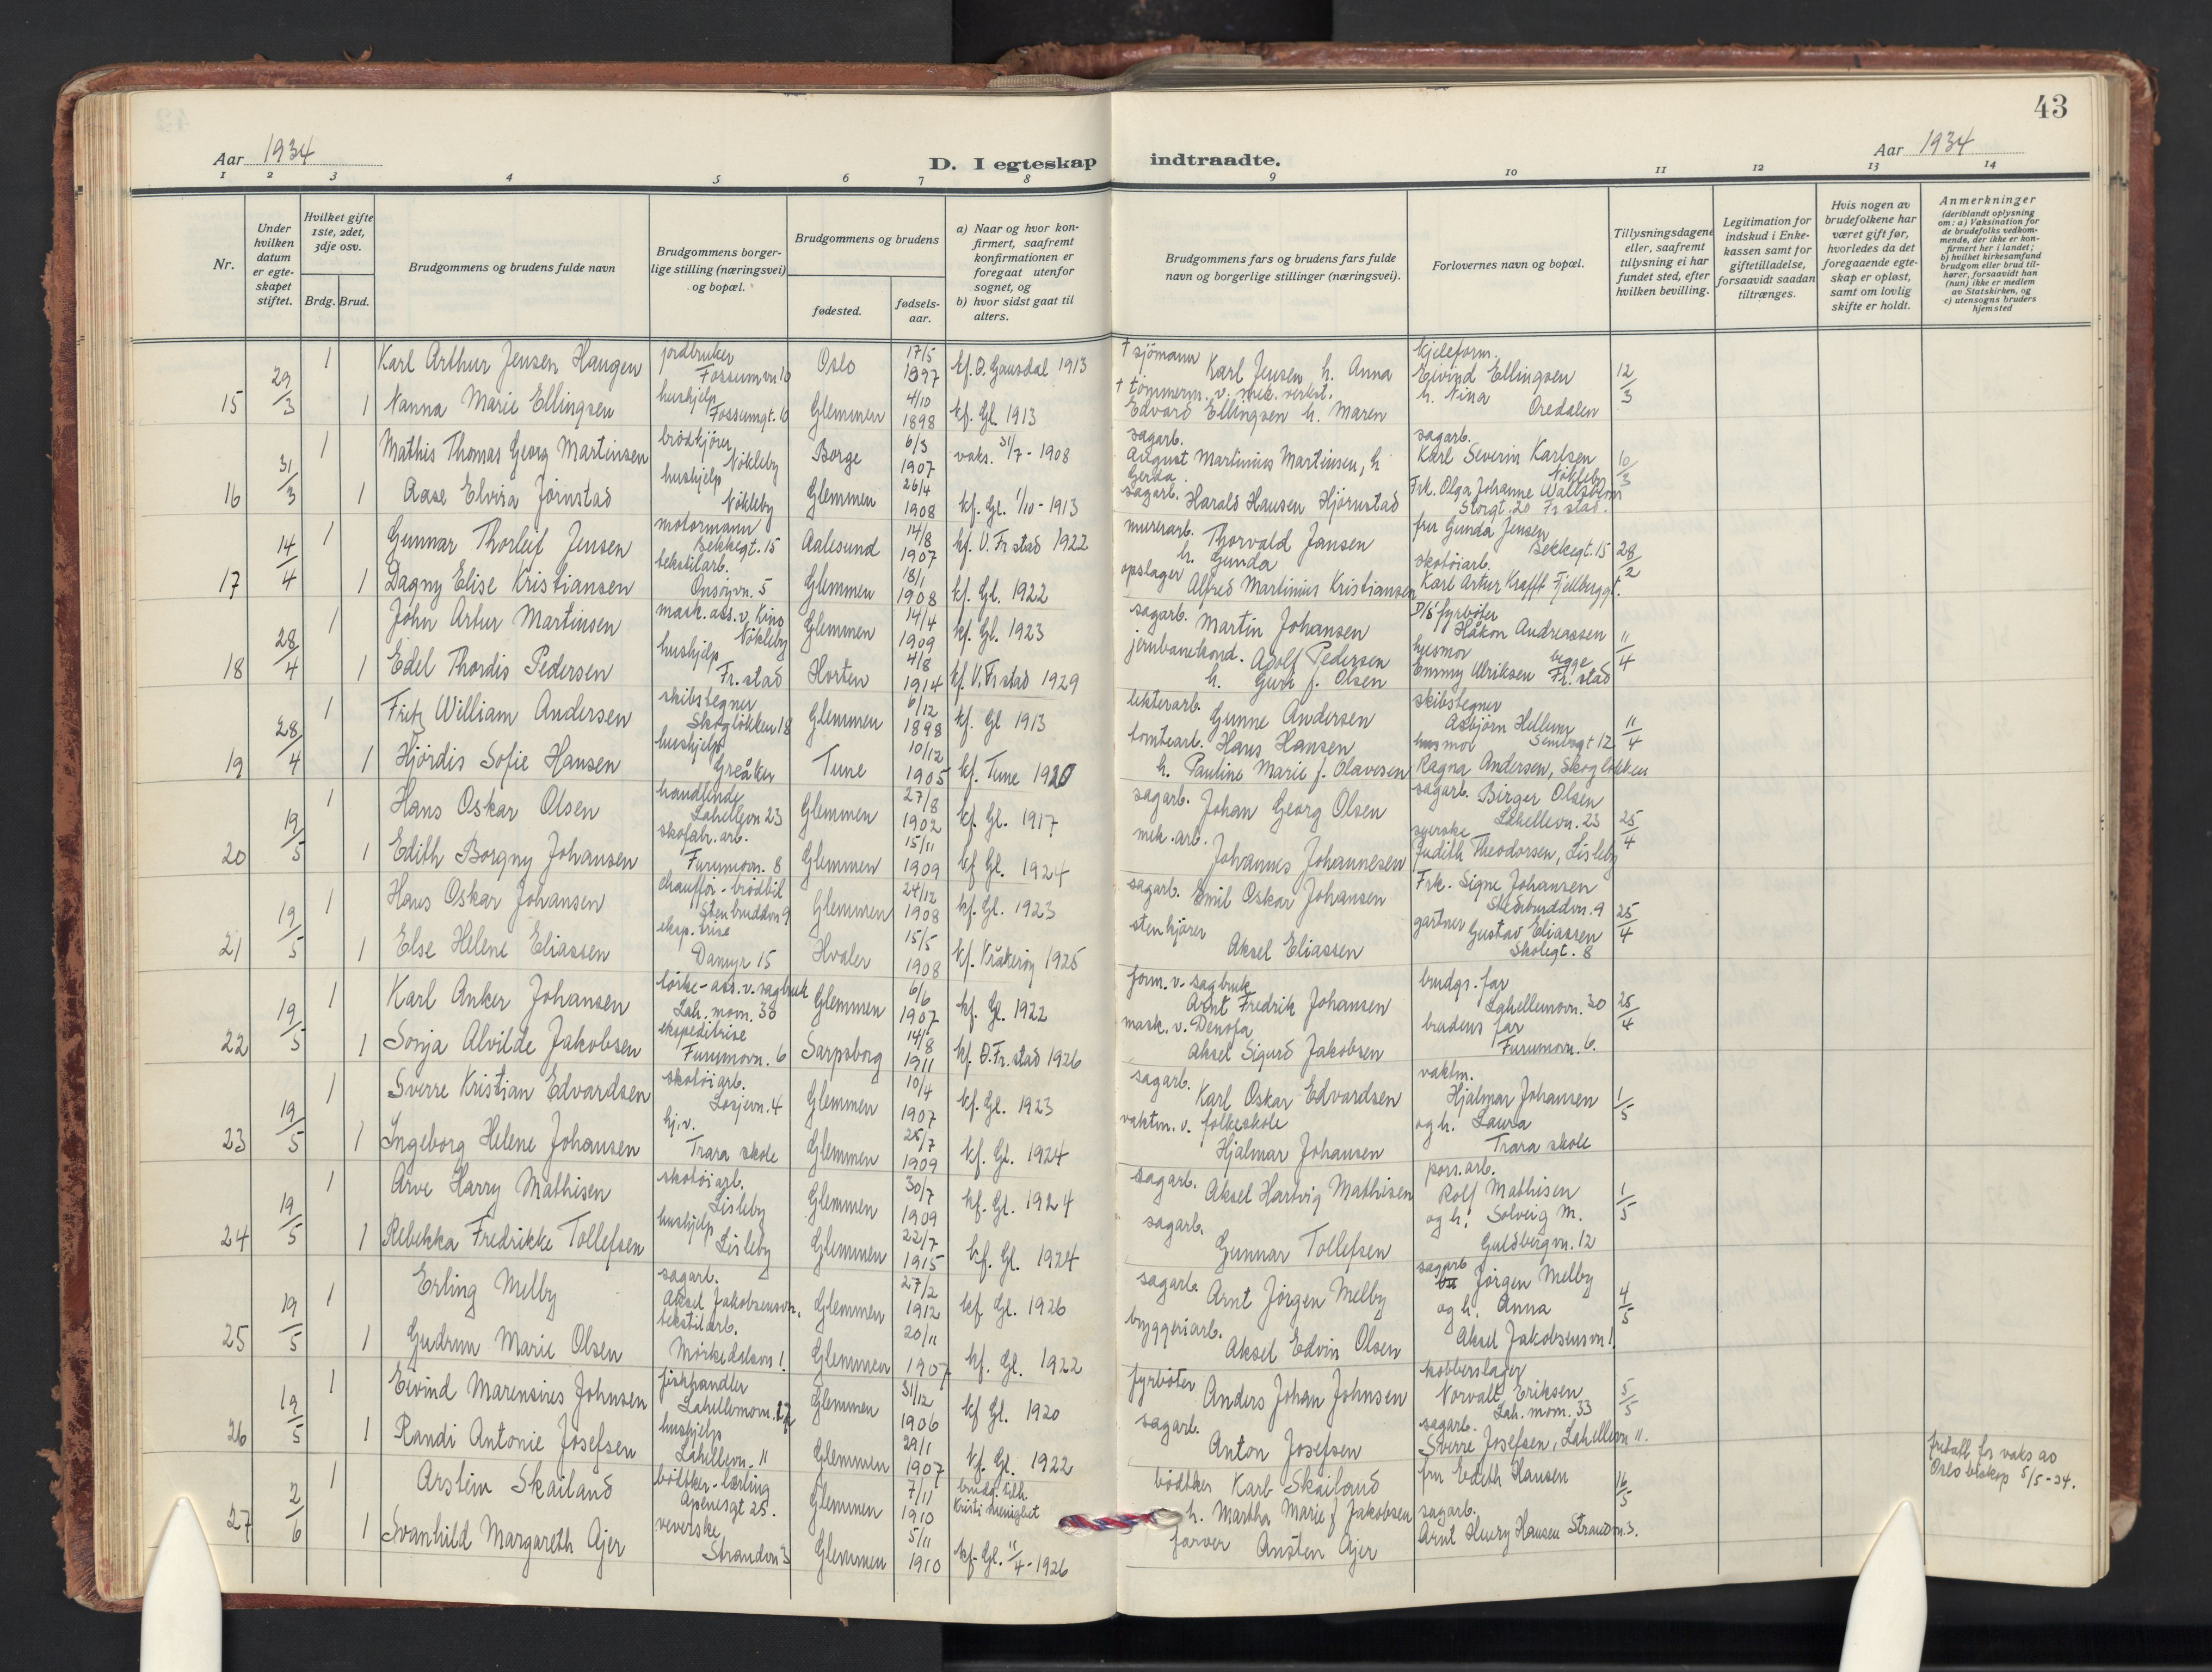 43
Aar 1934
D. I egteskap indtraadte.
Aar 1934
1 2 3 4 5 6 7 8 9 10 11 12 13 14
Nr.
Under hvilken datum er egteskapet stiftet.
Hvilket gifte 1ste, 2det, 3dje osv.
Brdg. Brud.
Brudgommens og brudens fulde navn
Brudgommens borgerlige stilling (næringsvei) og bopæl.
Brudgommens og brudens
fødested.
fødselsaar.
a) Naar og hvor konfirmert, saafremt konfirmationen er foregaat utenfor sognet, og
b) hvor sidst gaat til alters.
Brudgommens fars og brudens fars fulde navn og borgerlige stillinger (næringsvei).
Forlovernes navn og bopæl.
Tillysningsdagene eller, saafremt tillysning ei har fundet sted, efter hvilken bevilling.
Legitimation for indskud i Enkekassen samt for giftetilladelse, forsaavidt saadan tiltrænges.
Hvis nogen av brudefolkene har været gift før, hvorledes da det foregaaende egteskap er opløst, samt om lovlig skifte er holdt.
Anmerkninger
(deriblandt oplysning om: a) Vaksination for de brudefolks vedkommende, der ikke er konfirmert her i landet; b) hvilket kirkesamfund brudgom eller brud tilhører, forsaavidt han (hun) ikke er medlem av Statskirken, og c) utensogns bruders hjemsted
15 29/3 1 Karl Arthur Jensen Haugen jordbruker Fossumvn 10 Oslo 17/5 1897 kf. Ø. Gausdal 1913 † sjömann Karl Jensen h. Anna kjeleform. Eivind Ellingsen 12/3
1 Nanna Marie Ellingsen hushjelp Fossumgt. 10 Glemmen 4/10 1898 kf. Gl. 1913 † tömmerm. v. mek. verkst. Edvard Ellingsen h. Maren h. Nina Oredalen
16 31/3 1 Mathis Thomas Georg Martinsen brödkjörer Nökleby Borge 6/3 1907 vaks. 31/7-1908 sagarb. August Martinius Martinsen, h Gerda sagarb. Karl Severin Karlsen Nökleby 10/3
1 Aase Elvira Jörnstad hushjelp Nökleby Glemmen 26/4 1908 kf. Gl. 1/10-1913 sagarb. Harald Hansen Hjörnstad Frk. Olga Johanne Waltsblom Storgt. 20 Fr.stad.
17 14/4 1 Gunnar Thorleif Jensen motormann Bekkegt. 15 Aalesund 14/8 1907 kf. V. Fr stad 1922 murerarb. Thorvald Jansen h. Gunda fru Gunda Jensen Bekkegt. 15 28/2
1 Dagny Elise Kristiansen tekstilarb. Onsöyvn. 5 Glemmen 18/1 1908 kf. Gl. 1922 opslager Alfred Martinius Kristiansen skotöiarb. Karl Artur Krafft Fjellberggt.
18 28/4 1 John Artur Martinsen mask. ass. v. Kino Nökleby Glemmen 14/4 1909 kf. Gl. 1923 sagarb. Martin Johansen D/s fyrböter Håkon Andreassen 11/4
1 Edel Thordis Pedersen hushjelp Fr. stad Horten 4/8 1914 kf. V. Fr stad 1929 jernbanekond. Adolf Pedersen h. Guri f. Olsen husmor Emmy Ulriksen begge Fr. stad
19 28/4 1 Fritz William Andersen skibstegner Skoglökken 18 Glemmen 6/12 1898 kf. Gl 1913 lekterarb. Gunne Andersen skibstegner Asbjörn Hellum 11/4
1 Hjördis Sofie Hansen hushjelp Greåker Tune 10/12 1905 kf. Tune 1920 tomtearb. Hans Hansen h. Pauline Marie f. Olavesen husmor Ragna Andersen, Skoglökken
20 19/5 1 Hans Oskar Olsen handlende Lahellevn 23 Glemmen 27/8 1902 kf. Gl. 1917 sagarb. Johan Georg Olsen sagarb. Birger Olsen Lahellevn. 23 25/4
1 Edith Borgny Johansen skofabr. arb. Furumovn. 8 Glemmen 15/11 1909 kf Gl. 1924 mek. arb. Johannes Johannesen syerske Judith Theodorsen, Lisleby
21 19/5 1 Hans Oskar Johansen chauffør - brödbil Stenbruddvn 9 Glemmen 24/12 1908 kf. Gl. 1923 sagarb. Emil Oskar Johansen Frk. Signe Johansen Stenbruddvn. 9 25/4
1 Else Helene Eliassen eksp. trise Damyr 15 Hvaler 15/5 1908 kf. Kråkeröy 1925 stenkjörer Aksel Eliassen gartner Gustav Eliassen Skolegt. 8
22 19/5 1 Karl Anker Johansen törke-ass. v. sagbruk Lah. movn. 33 Glemmen 6/6 1907 kf. Gl. 1922 form. v. sagbruk Arnt Fredrik Johansen brudgs. far Lahellemovn. 30 25/4
1 Sonja Alvilde Jakobsen ekspeditrise Furumovn. 6 Sarpsborg 14/8 1911 kf. Ø. Fr. stad 1926 mask. v. Denofa Aksel Sigurd Jakobsen brudens far Furumovn. 6.
23 19/5 1 Sverre Kristian Edvardsen skotöiarb. Losjevn. 4 Glemmen 10/4 1907 kf. Gl. 1923 sagarb. Karl Oskar Edvardsen vaktm. Hjalmar Johansen 1/5
1 Ingeborg Helene Johansen hj. v. Trara skole Glemmen 25/7 1909 kf. Gl. 1924 vaktm. v. folkeskole Hjalmar Johansen og h. Laura Trara skole
24 19/5 1 Arve Harry Mathisen skotöiarb. Lisleby Glemmen 30/7 1909 kf. Gl. 1924 sagarb. Aksel Hartvig Mathisen pors. arb. Rolf Mathisen 1/5
1 Rebekka Fredrikke Tollefsen hushjelp Lisleby Glemmen 22/7 1915 kf. Gl. 1924 sagarb. Gunnar Tollefsen og h. Solveig M. Guldbergvn. 12
25 19/5 1 Erling Melby sagarb. Aksel Jakobsensvn. Glemmen 27/2 1912 kf Gl. 1926 sagarb. Arnt Jörgen Melby sagarb Jörgen Melby 4/5
1 Gudrun Marie Olsen tekstilarb. Mörkedalsvn 1. Glemmen 20/11 1907 kf. Gl. 1922 bryggeriarb. Aksel Edvin Olsen og h. Anna Aksel Jakobsensvn 1.
26 19/5 1 Eivind Marensius Johnsen fiskhandler Lahellemovn. Glemmen 31/12 1906 kf Gl. 1920 fyrböter Anders Johan Johnsen kobberslager Norvald Eriksen Lah. movn. 33 5/5
1 Randi Antonie Josefsen hushjelp Lahellevn. 11 Glemmen 29/1 1907 kf. Gl. 1922 sagarb. Anton Josefsen sagarb. Sverre Josefsen, Lahellevn 11.
27 2/6 1 Arstein Skailand bödtker-lærling Apenesgt 25. Glemmen 7/11 1910 brudg. tilh. Kristi menighet bödtker Karl Skailand h. Martha Marie f Jakobsen fru Edith Hansen 16/5 fritatt for vaks av Oslo biskop 5/5-34.
1 Svanhild Margareth Ajer veverske Strandvn 3 Glemmen 5/11 1910 kf. Gl. 11/4-1926 farver Ansten Ajer sagarb. Arnt Henry Hansen Strandvn. 3.